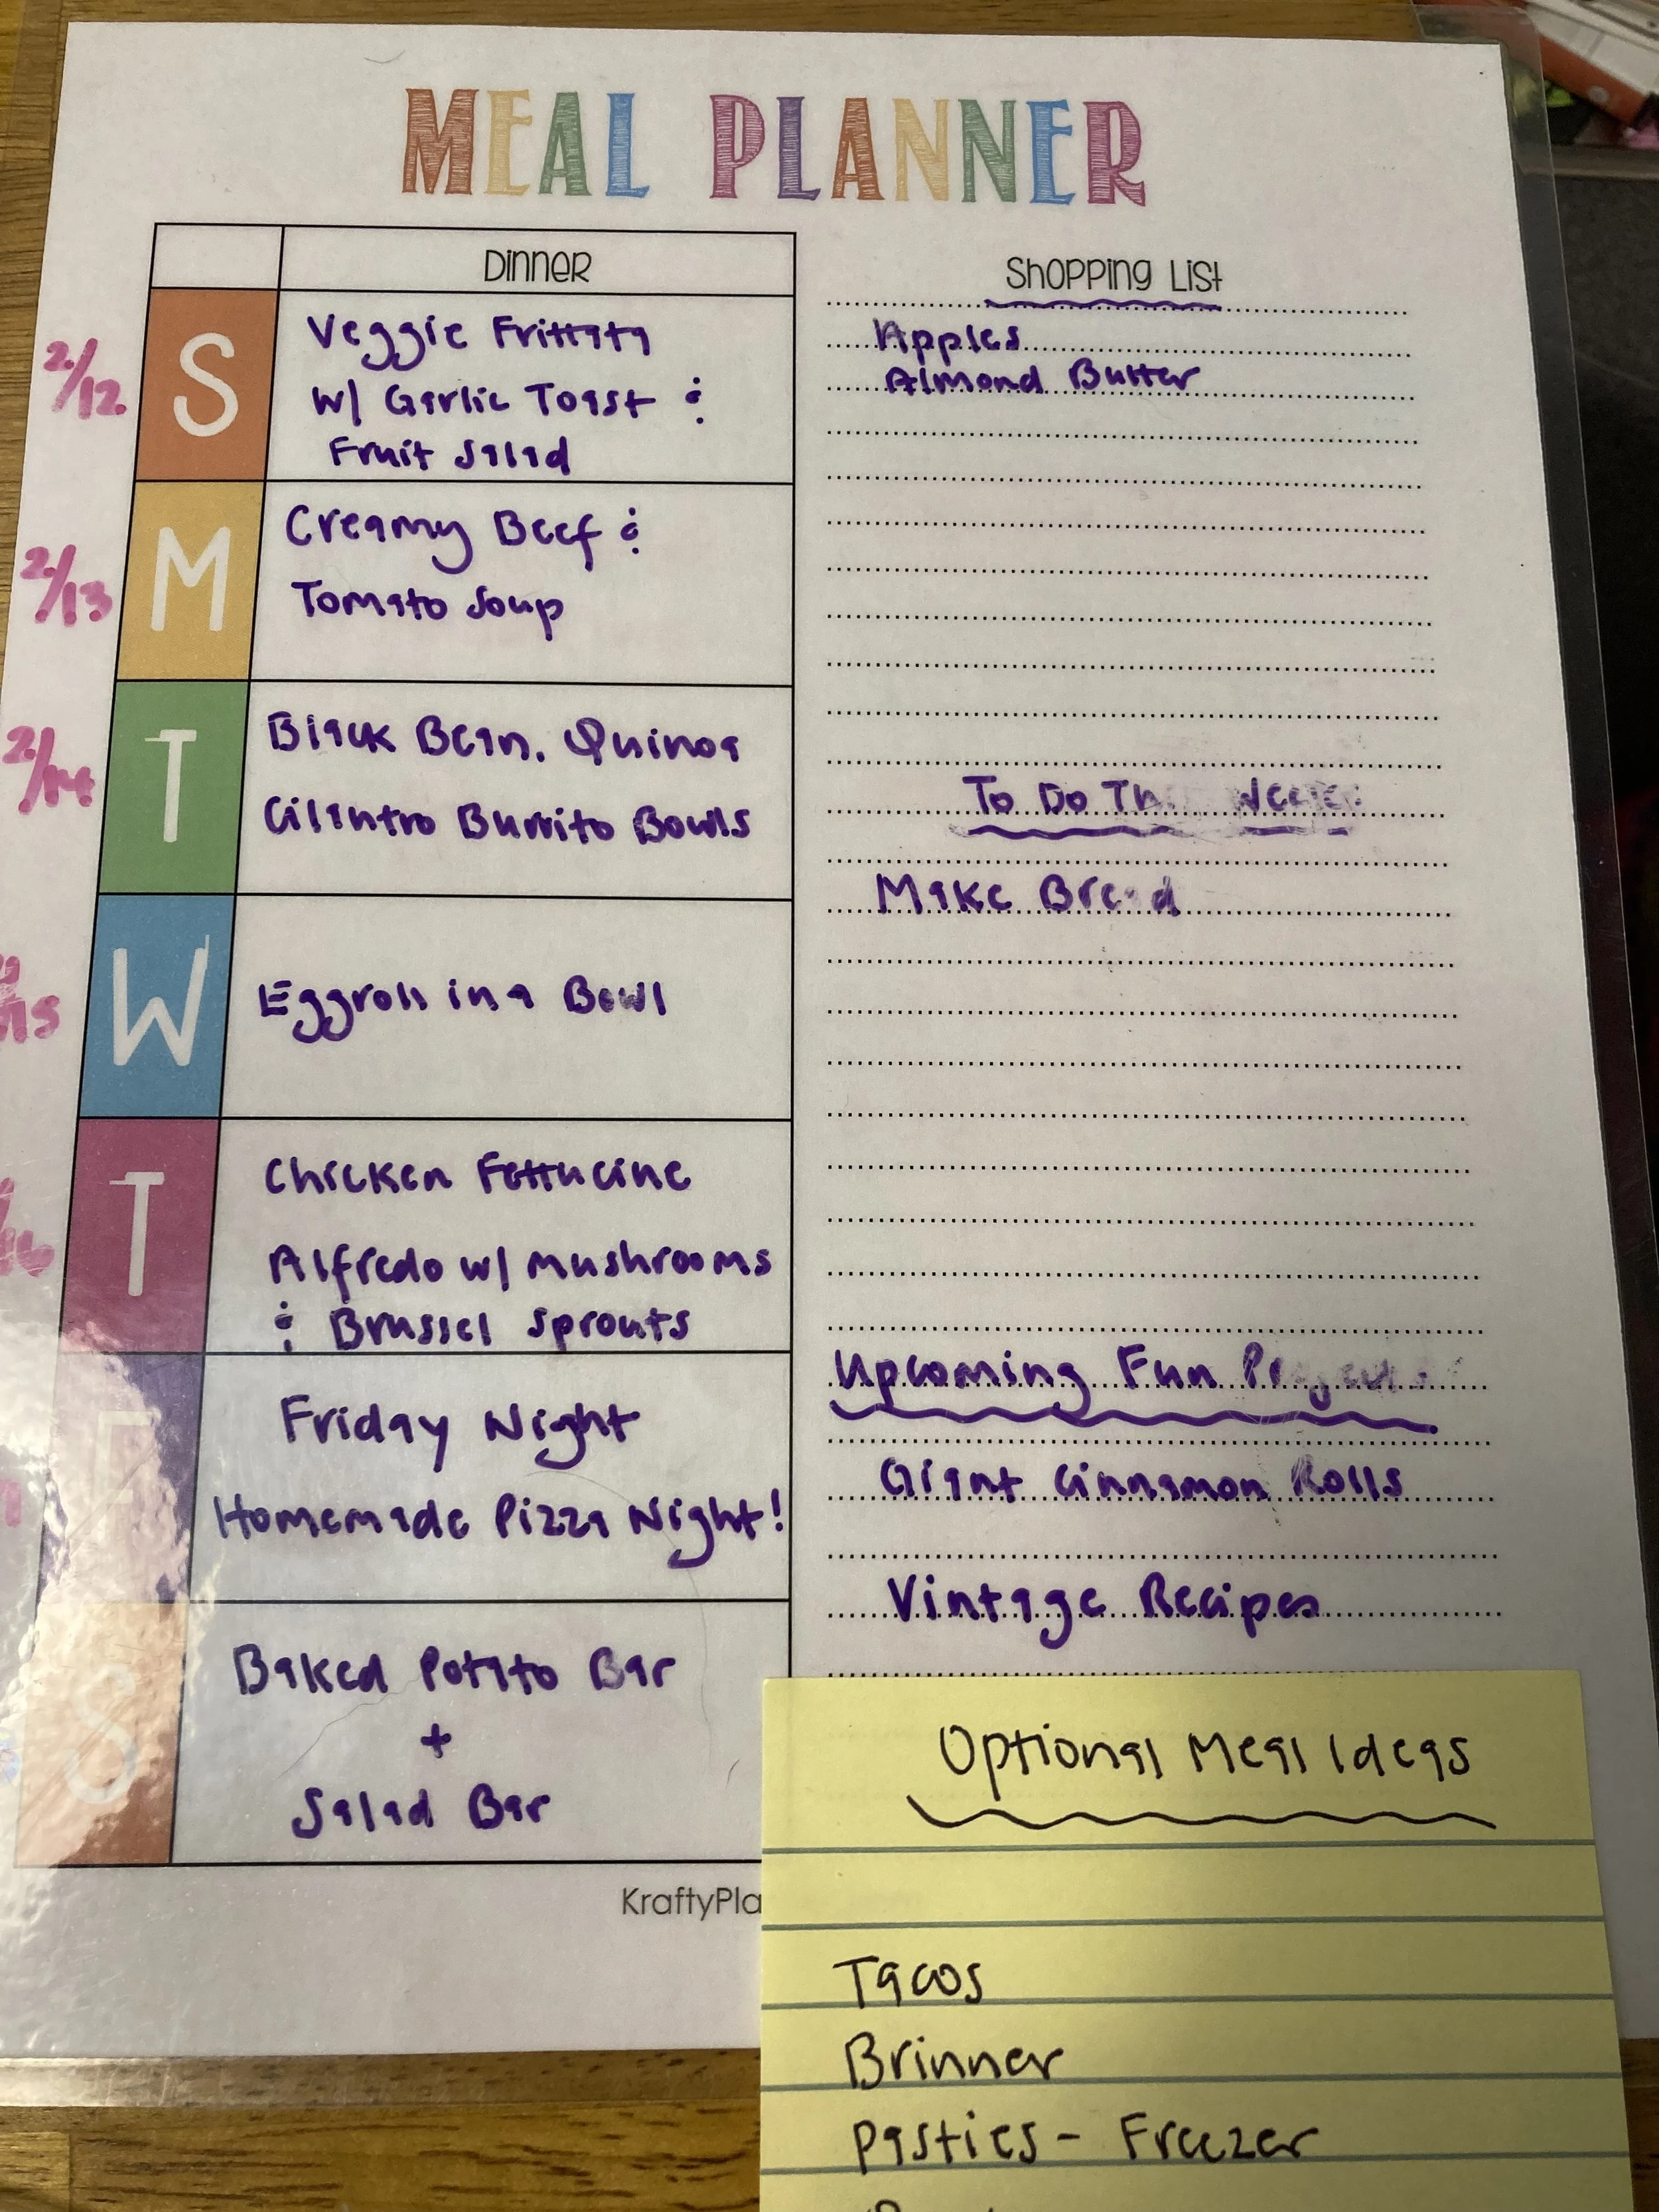 MEAL PLANNER
Dinner
2/12
S
Veggie Frittata
w/ Garlic Toast &
Fruit Salad
2/13
M
Creamy Beef &
Tomato Soup
2/14
T
Black Bean, Quinoa
Cilantro Burrito Bowls
W
Eggroll in a Bowl
T
Chicken Fettucine
Alfredo w/ mushrooms
& Brussel Sprouts
F
Friday Night
Homemade Pizza Night!
S
Baked Potato Bar
+
Salad Bar
KraftyPla
Shopping List
Apples
Almond Butter
To Do This Week
Make Bread
Upcoming Fun Projects
Giant Cinnamon Rolls
Vintage Recipes
Optional Meal Ideas
Tacos
Brinner
Pasties - Freezer